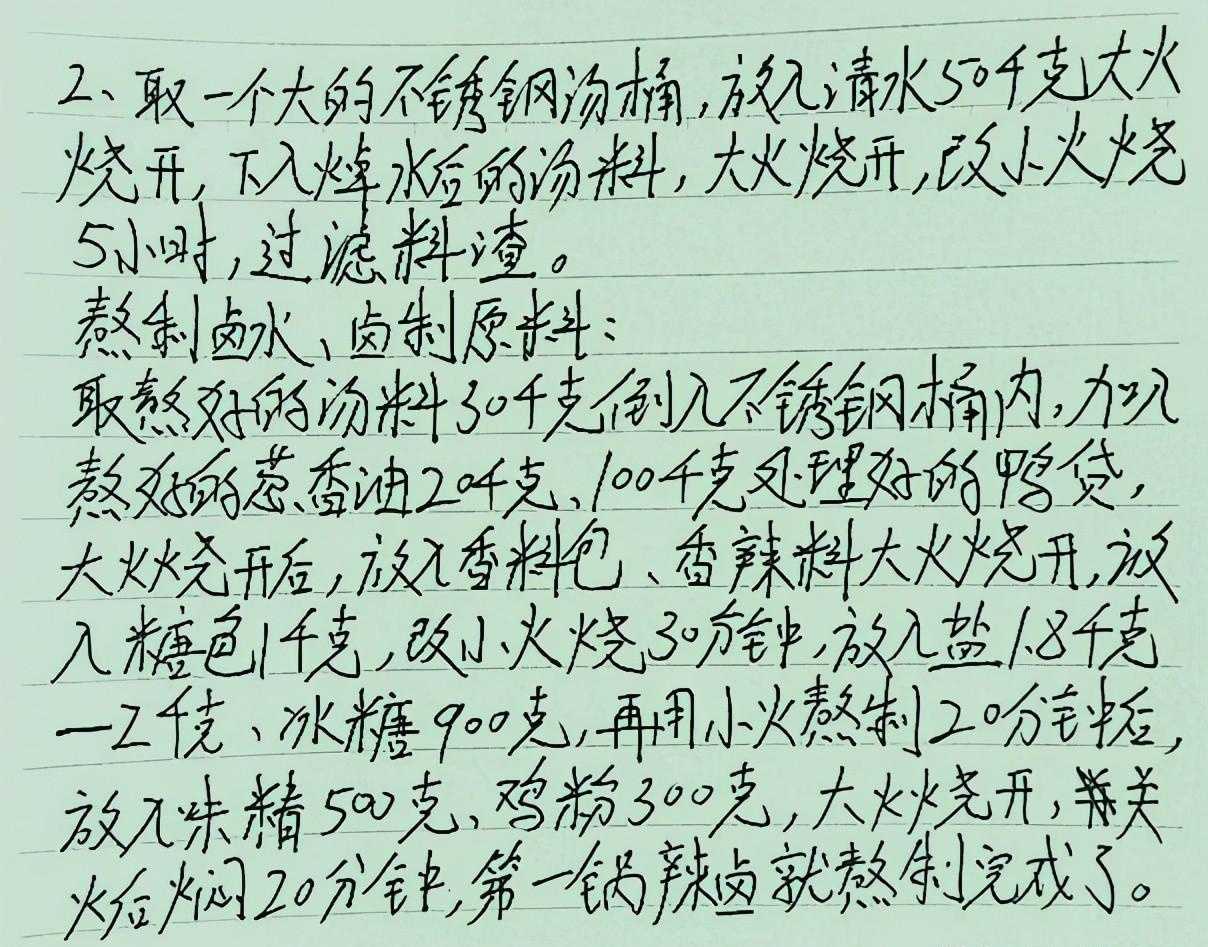 2、取一个大的不锈钢汤桶,放入清水50千克大火
烧开,下入焯水后的汤料,大火烧开,改小火烧
5小时,过滤料渣。
熬制卤水、卤制原料:
取熬好的汤料30千克倒入不锈钢桶内,加入
熬好的葱香油20千克、100千克处理好的鸭货,
大火烧开后,放入香料包、香辣料大火烧开,放
入糖色1千克,改小火烧30分钟,放入盐1.8千克
—2千克、冰糖900克,再用小火熬制20分钟后,
放入味精500克、鸡粉300克,大火烧开,关
火后焖20分钟,第一锅辣卤就熬制完成了。